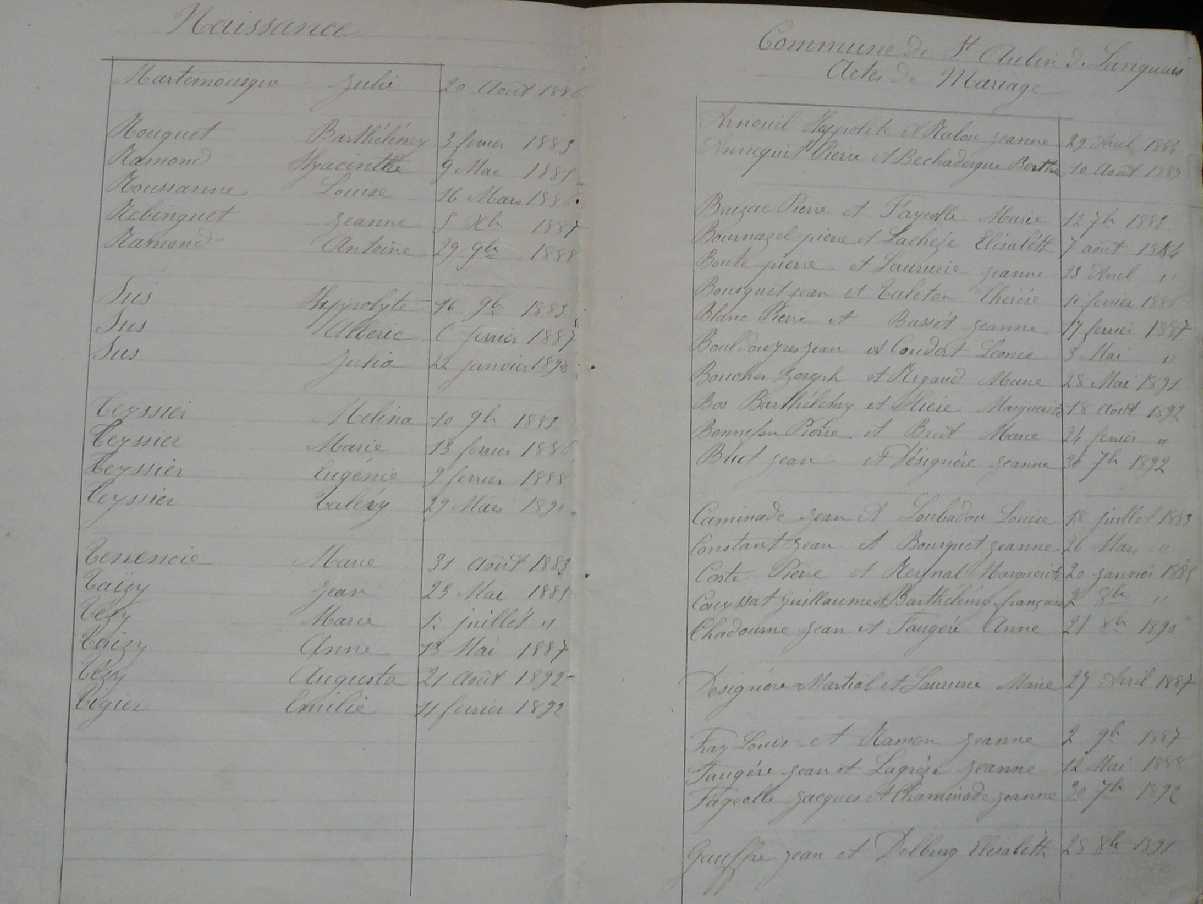 Naissance
Julie 20 Août 1886
Rouquet Barthélémy 3 fevrier 1883
Ramond Hyacinthe 9 Mai 1885
Roussanne Louise 16 Mars 1886
Rebinguet Jeanne 5 Xb 1887
Ramond Antoine 29 9bre 1888
Sus Hyppolyte 16 9b 1883
Sus Alberic 6 fevrier 1887
Sus Julia 22 janvier 1890
Teyssier Mélina 10 9b 1883
Teyssier Marie 13 fevrier 1886
Teyssier Eugénie 2 fevrier 1888
Teyssier 29 Mars 1890
Marie 31 Août 1883
Taïzy Jean 23 Mai 1885
Tézy Marie 12 juillet "
Taizy Anne 13 Mai 1887
Tézy Augusta 21 Août 1892
Tigier Emilie 11 fevrier 1892
Commune de St Aubin de Lanquais
Actes de Mariage
Arneuil Hyppolite et Jeanne 29 Avril 1886
Pierre et Bechadergue Berthe 10 Août 1889
Pierre et Fayolle Marie 12 7b
Bournazel pierre et Lachèze Elisabeth 7 août 1884
Boule pierre et Jeanne 23 Avril "
Bousquet jean et Taleton fevrier 1886
Blanc Pierre et Jeanne 17 fevrier 1887
jean et Coudert Léonie 3 Mai "
Boucher Joseph et Rigaud Marie 28 Mai 1891
Bos Barthélémy et Marguerite 18 Août 1892
Pierre et Marie 24 fevrier "
jean et Désignère Jeanne 7b 1892
Caminade Jean et Loubadou Louise 18 juillet 1883
Constant Jean et Bousquet Jeanne 26 Mars "
Coste Pierre et Reynal Marguerite 20 janvier 1885
Guillaume et Barthélémy 8b "
Chadourne Jean et Faugère Anne 21 Xb 1890
Désignère Martial et Marie 27 Avril 1887
Louis et Ramon Jeanne 2 9b 1887
Faugère Jean et Lagrèze Jeanne 12 Mai 1888
Fageolle Jacques et Chaminade Jeanne 20 7b 1892
Jean et Elisabeth 25 8b 1891